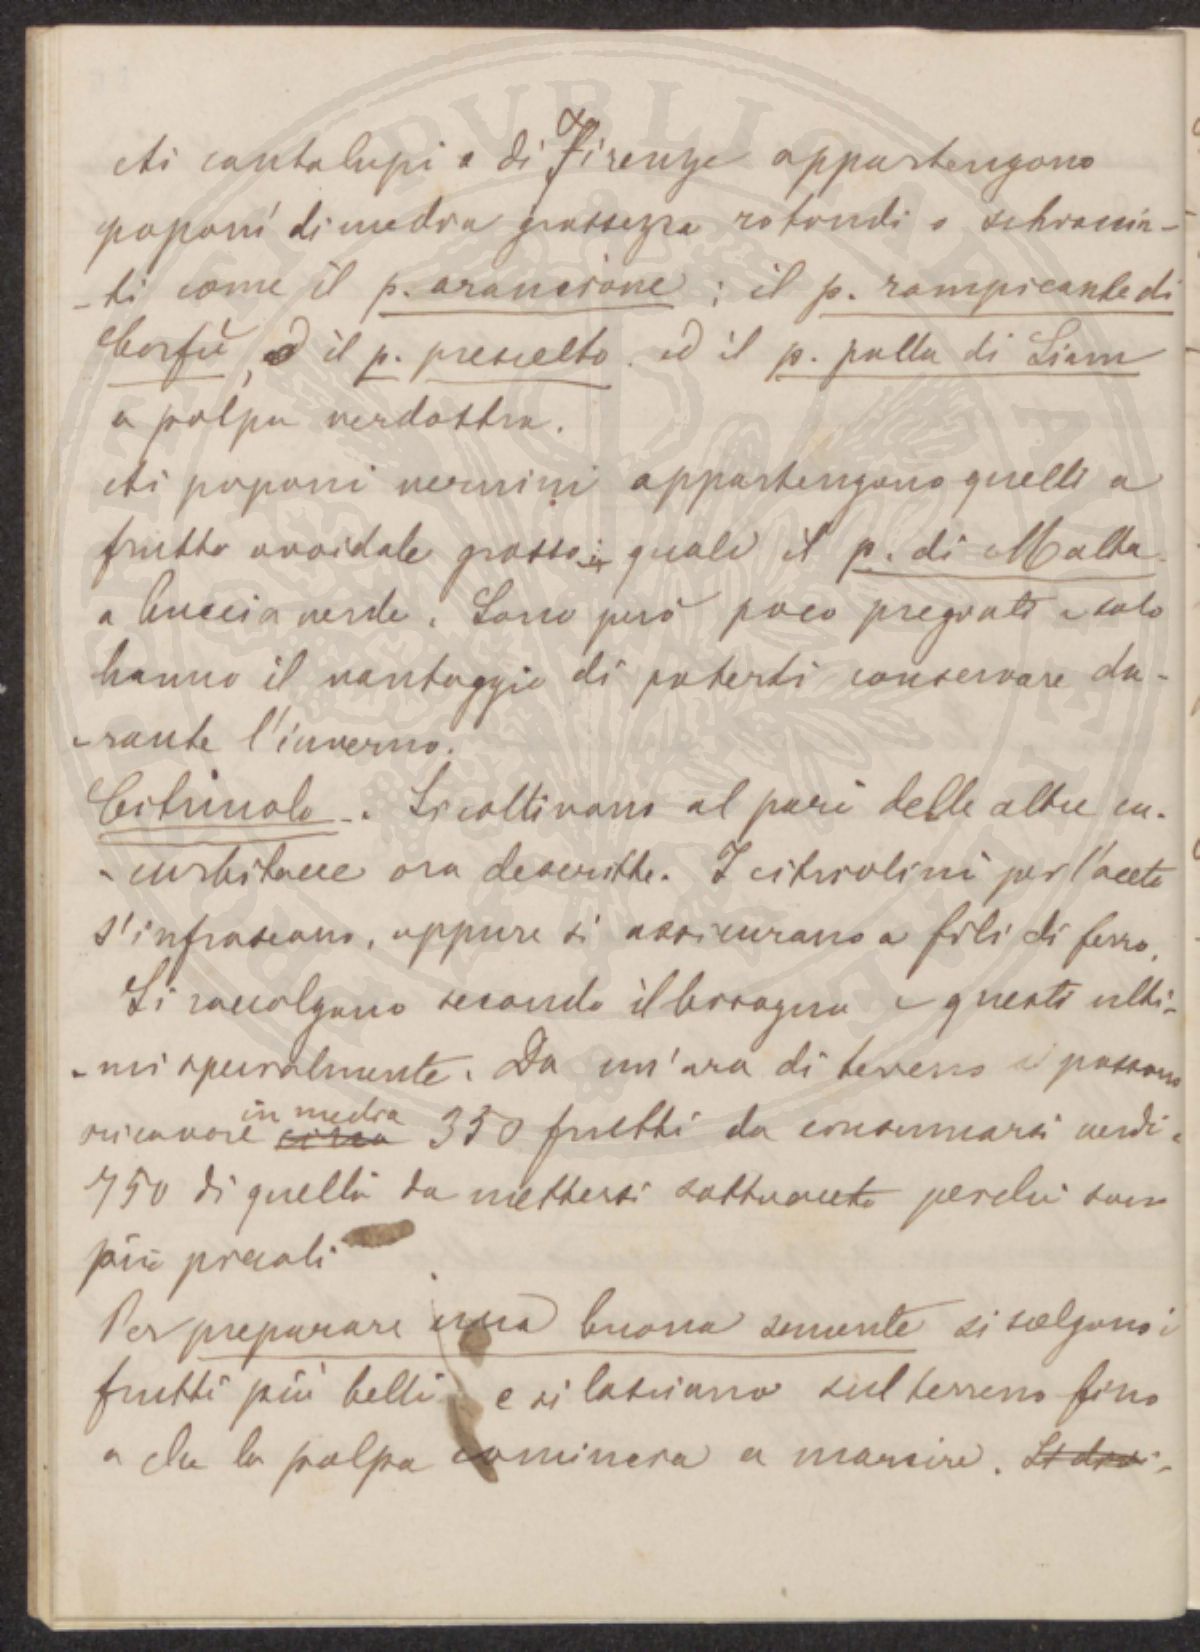 Ai cantalupi o di Firenze appartengono
poponi di media grossezza rotondi o schiaccia-
-ti come il p. arancione; il p. rampicante di
Corfù, ed il p. prescelto. ed il p. palla di Siam
a polpa verdastra.
Ai poponi vernini appartengono quelli a
frutto ovoidale grosso, quale il p. di Malta
a buccia verde. Sono però poco pregiati e solo
hanno il vantaggio di potersi conservare du-
-rante l'inverno.
Cetriuolo -. Si coltivano al pari delle altre cu-
-curbitacee ora descritte. I citriolini per l'aceto
s'infrascano, oppure si assicurano a fili di ferro.
Si raccolgono secondo il bisogno e questi ulti-
-mi specialmente. Da un'ara di terreno si possono
ricavare in media circa 350 frutti da consumarsi verdi e
750 di quelli da mettersi sottoaceto perchè sono
più piccoli
Per preparare una buona semente si scelgono i
frutti più belli e si lasciano sul terreno fino
a che la polpa comincia a marcire. Si divi-